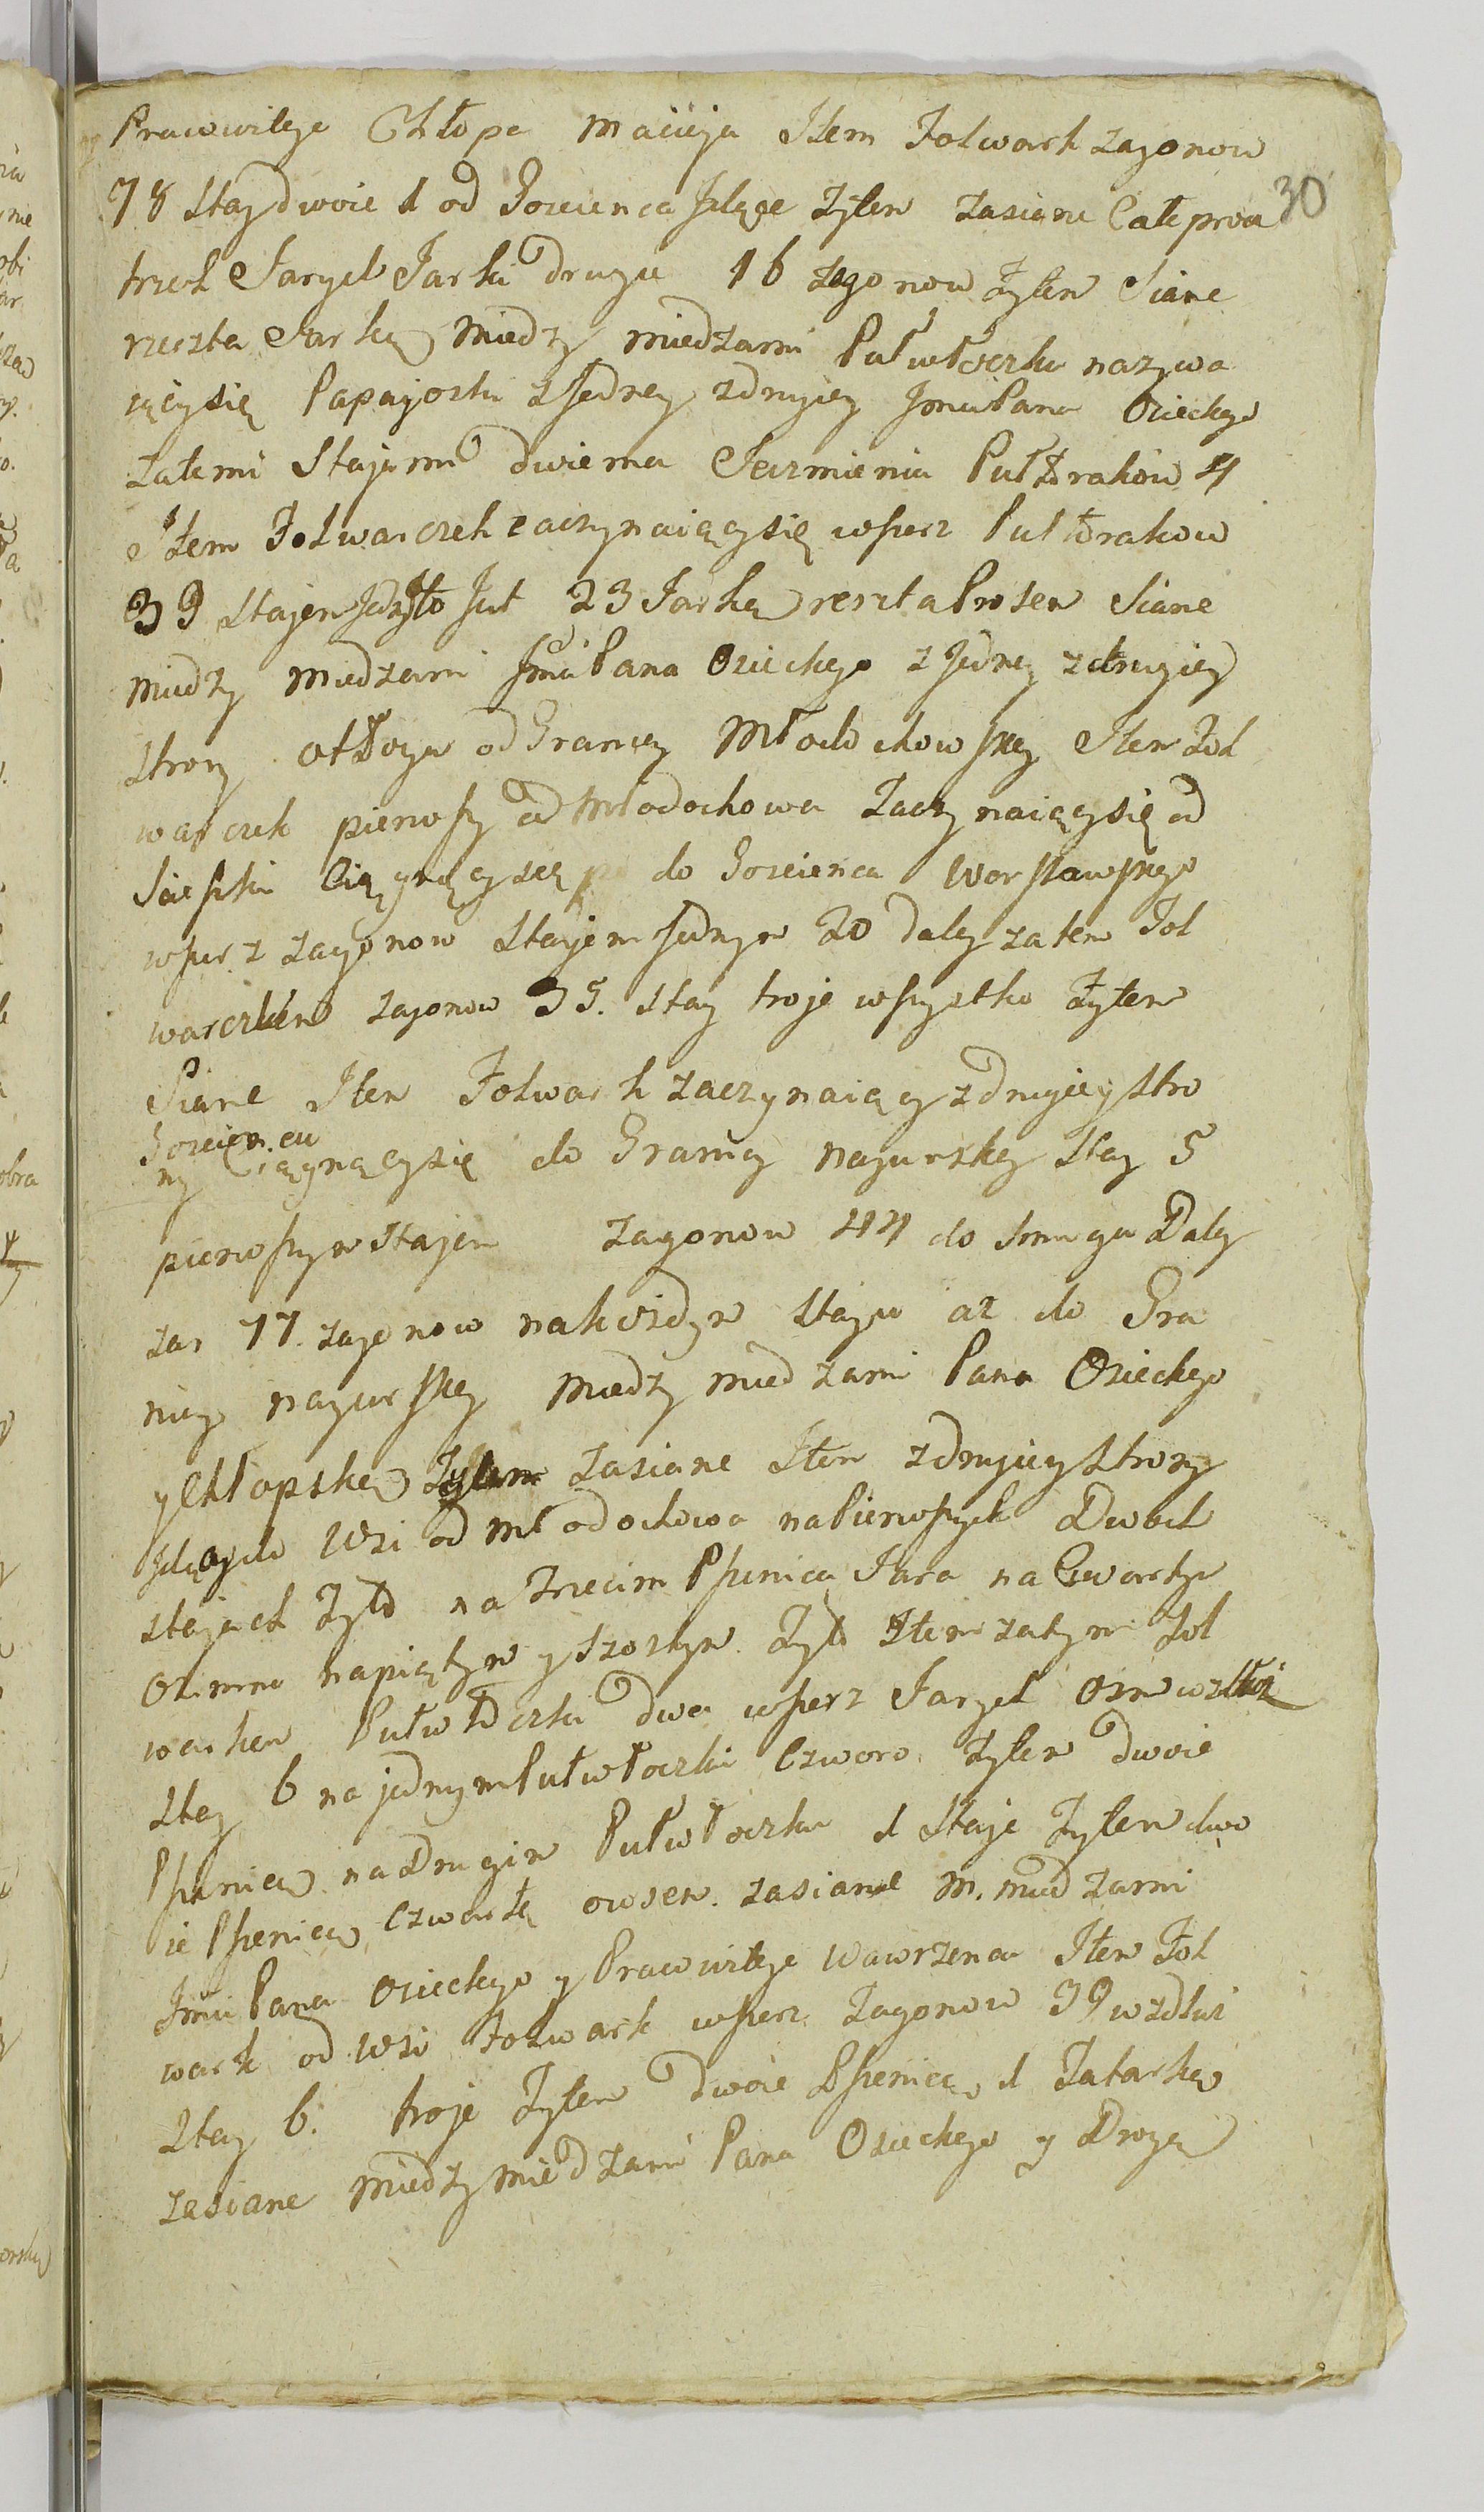 Pracowitego Chłopa Macieja Item Folwark zagonow
30
78 Stay dwoie 1 od Goscienca Idące żytem zasiane Całe procz
trzech Jarych Jarki drugie 16 zagonow żytem Siane
reszta Jarką Miedzy miedzami Pułwłoczku nazywa
iącysię Papayostu z Jedney zdrugiey Jmci Pana Osieckego
zatemi Stajami dwiema Jęczmienia Pułtorakow 4
Item Folwarczek zaczynaiącysię wszerz Pułtorakow
39 Stajem Jest 23 Jarką reszta Prosem Siane
miedzy miedzami Jmci Pana Osieckego z Jedney zdrugiey
strony odłogu od Granicy Młodochowskey Item Fol
warczek pierwszy od Młodochowa Zaczynaiącysię od
Scieszki Ciągnącysię do Goscienca Warszawskego
wszerz zagonow Stajem Jednym 20 daley zatem Fol
warczkiem zagonow 35. Stay troje wszystko żytem
Siane Item Folwark zaczynaiący zdrugieystro
Goscieńcu
ny Ciągnącysię do Granicy nagurskey Stay 5
pierwszym Stajem zagonow 44 do Smuga Daley
zas 17. zagonow nakożdym Staju aż do Gra
nicy nagurskey Miedzy miedzami Pana Osieckego
y Chłopską żytem zasiane Item zdrugieystrony
Idąc do Wsi od Młodochowa naPierwszych Dwoch
stajach żyto na Trzecim Pszenica Jara na Czwartym
ozimna napiątym y Szostym żyto Item zatym Fol
warkem Pułwłoczki dwa wszerz Jarych Osm wzdłuż
Stay 6 na jednymPułwłoczku Czworo żytem dwoie
Pszenicą naDrugim Pułwłoczku 1 Staje żytem dwo
ie Pszenicą Czwarte owsem zasiane m. miedzami
Jmci Pana Osieckego y Pracowitego Wawrzenca Item Fol
wark od Wsi Folwark wszerz Zagonow 39 wzdłuż
Stay 6. troje żytem dwoie Pszenicą 1 Tatarką
zasiane miedzy miedzami Pana Osieckego y Drogą